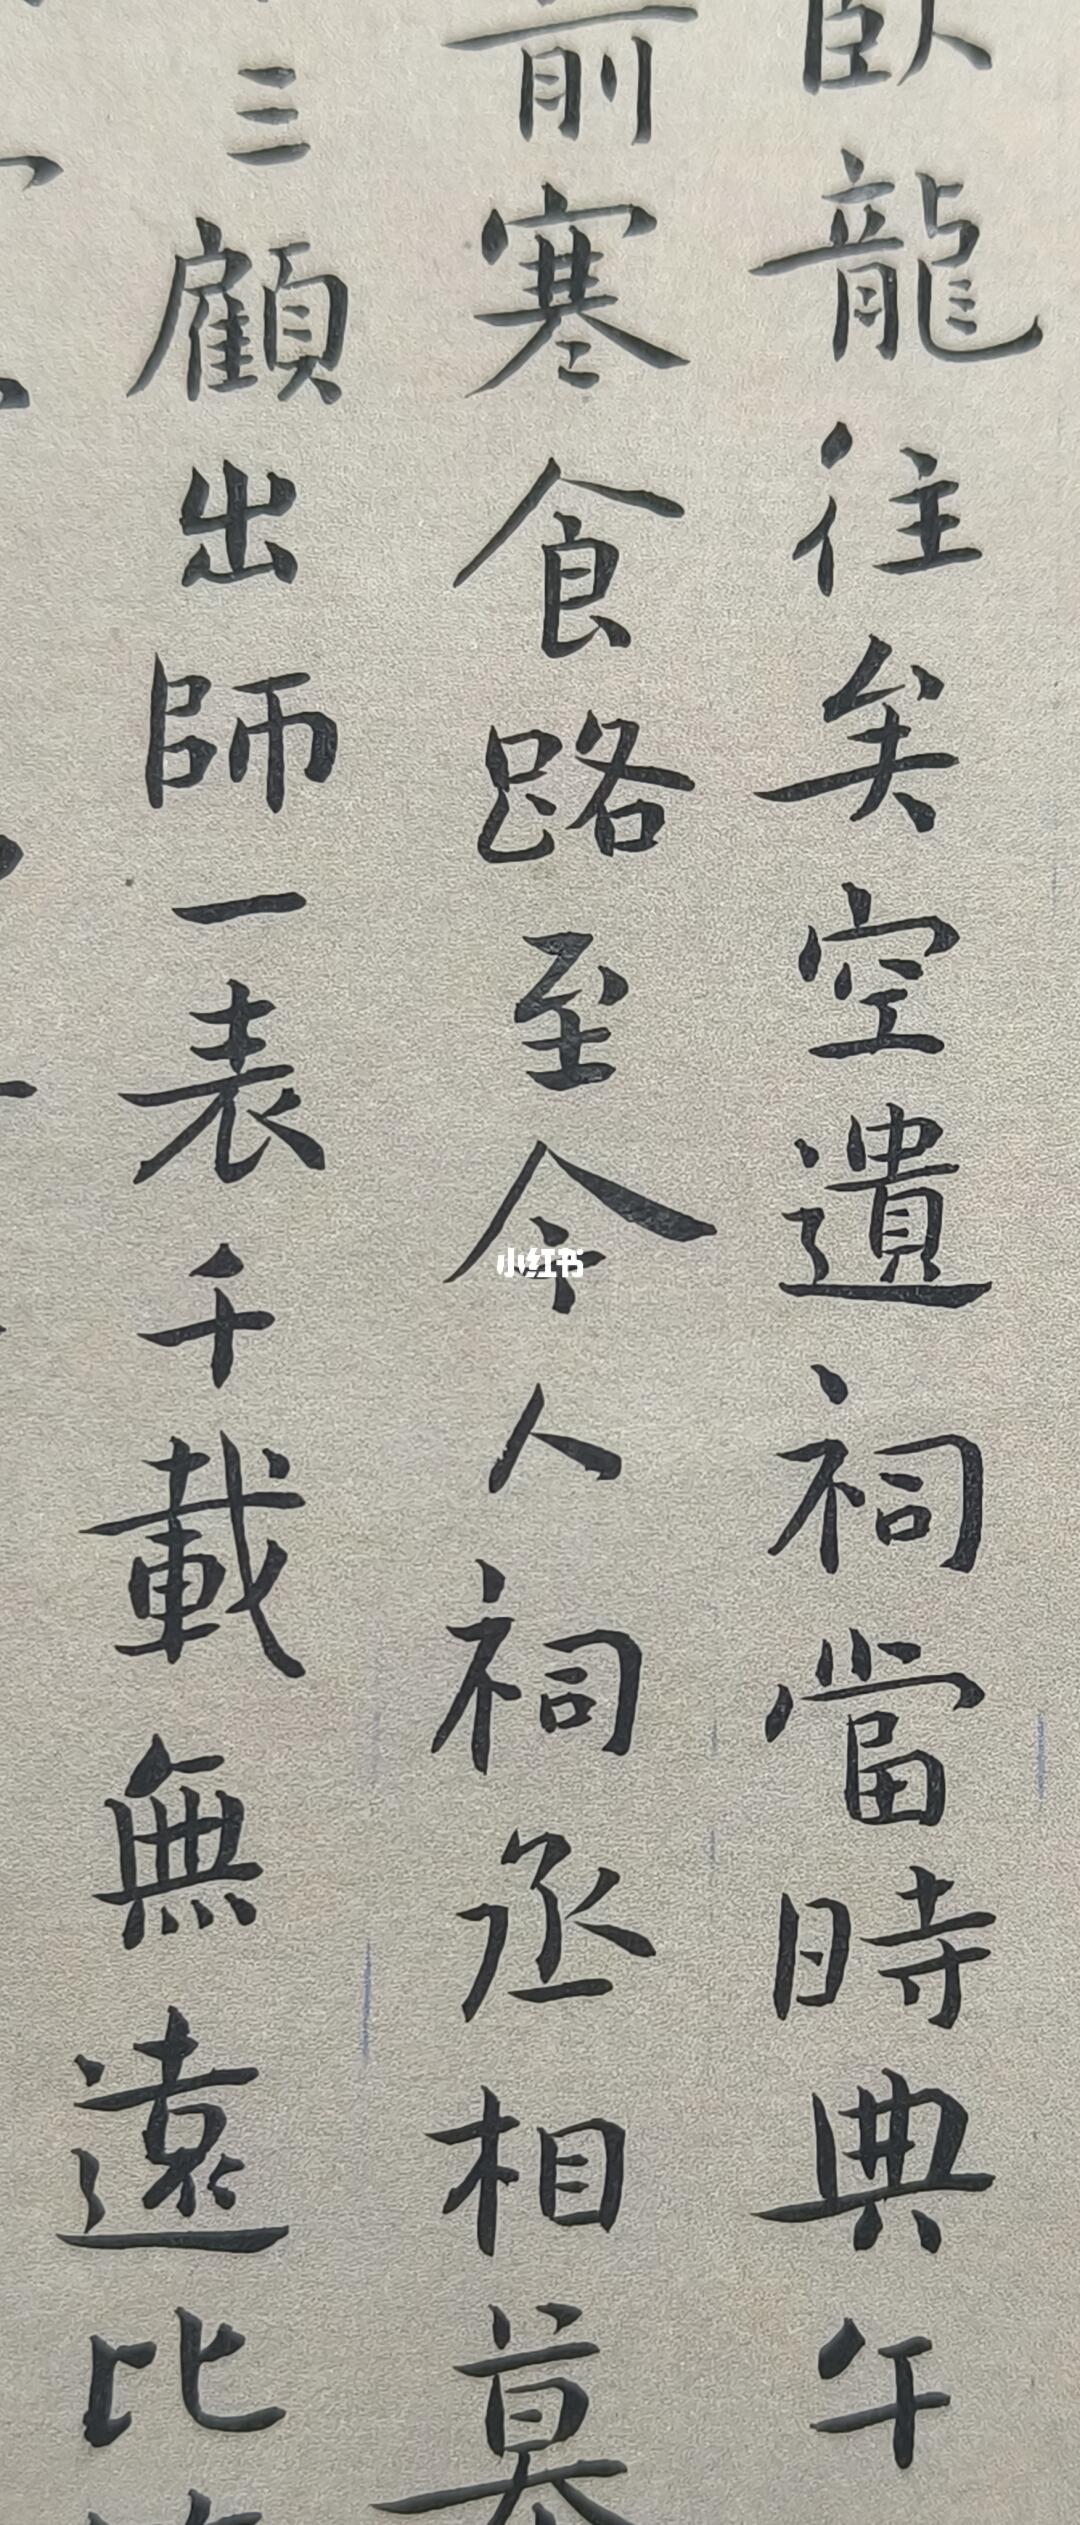 臥龍往矣空遺祠當時典午
前寒食路至今人祠丞相墓
三顧出師一表千載無遠比
小红书